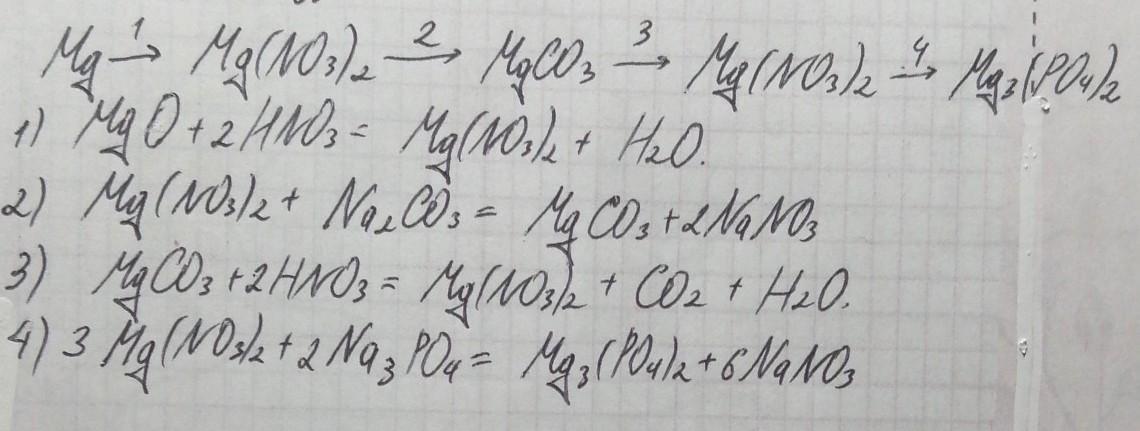 Mg 1→ Mg(NO3)2 2→ MgCO3 3→ Mg(NO3)2 4→ Mg3(PO4)2
1) MgO + 2HNO3 = Mg(NO3)2 + H2O.
2) Mg(NO3)2 + Na2CO3 = MgCO3 + 2NaNO3
3) MgCO3 + 2HNO3 = Mg(NO3)2 + CO2 + H2O.
4) 3 Mg(NO3)2 + 2Na3PO4 = Mg3(PO4)2 + 6NaNO3